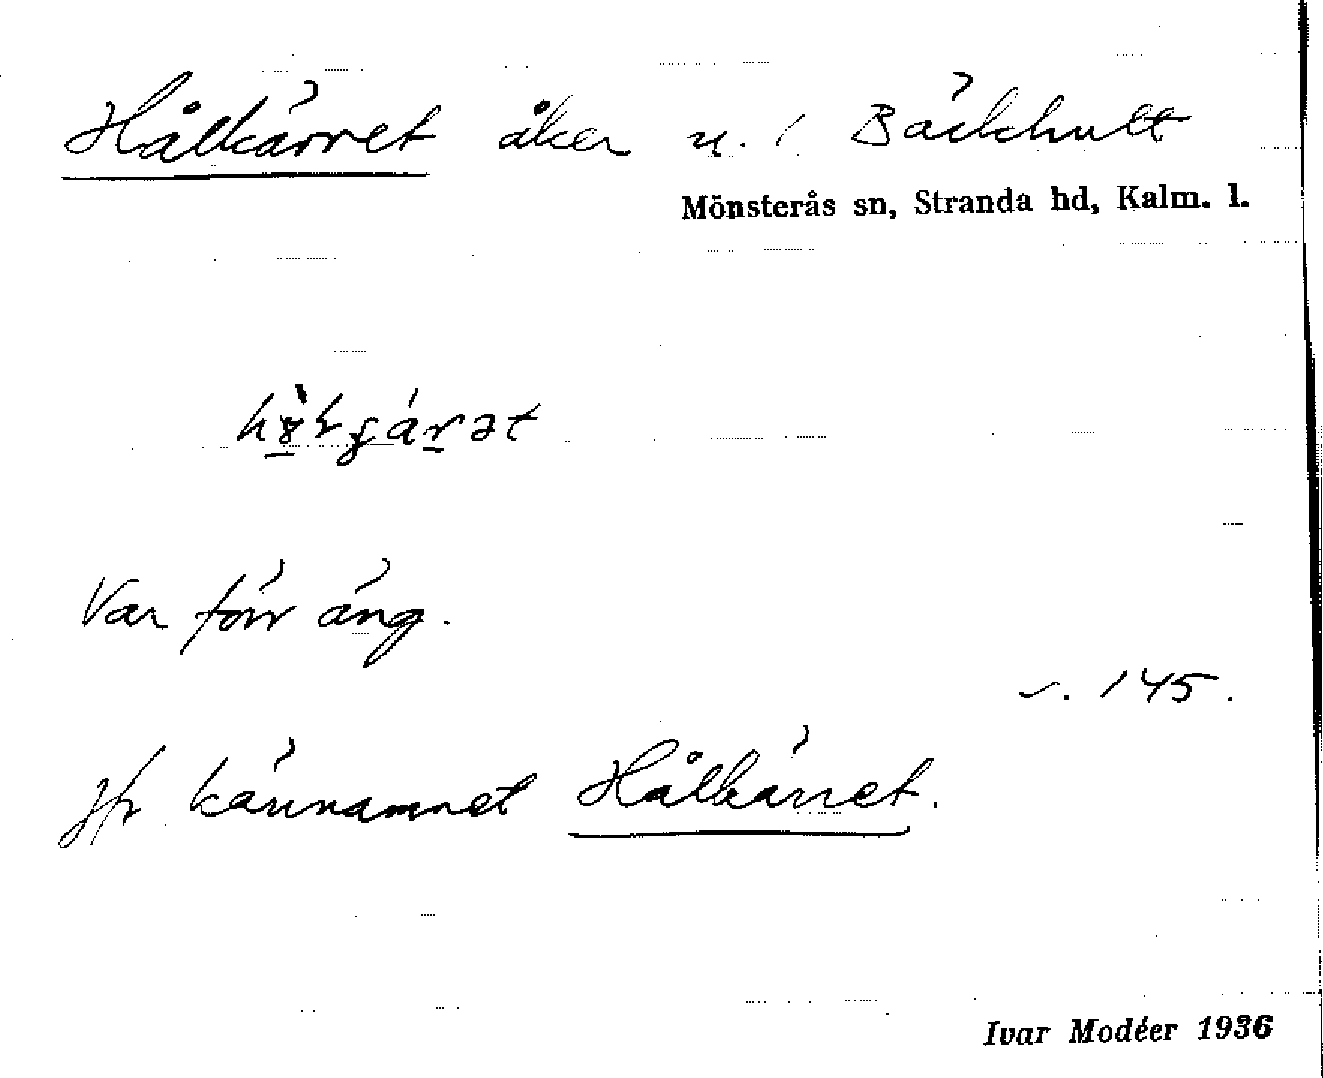 Hålkärret åker u. 1 Bäckhult
Mönsterås sn, Stranda hd, Kalm. l.
Var förr äng.
s. 145.
Jfr kärrnamnet Hålkärret.
Ivar Modéer 1936